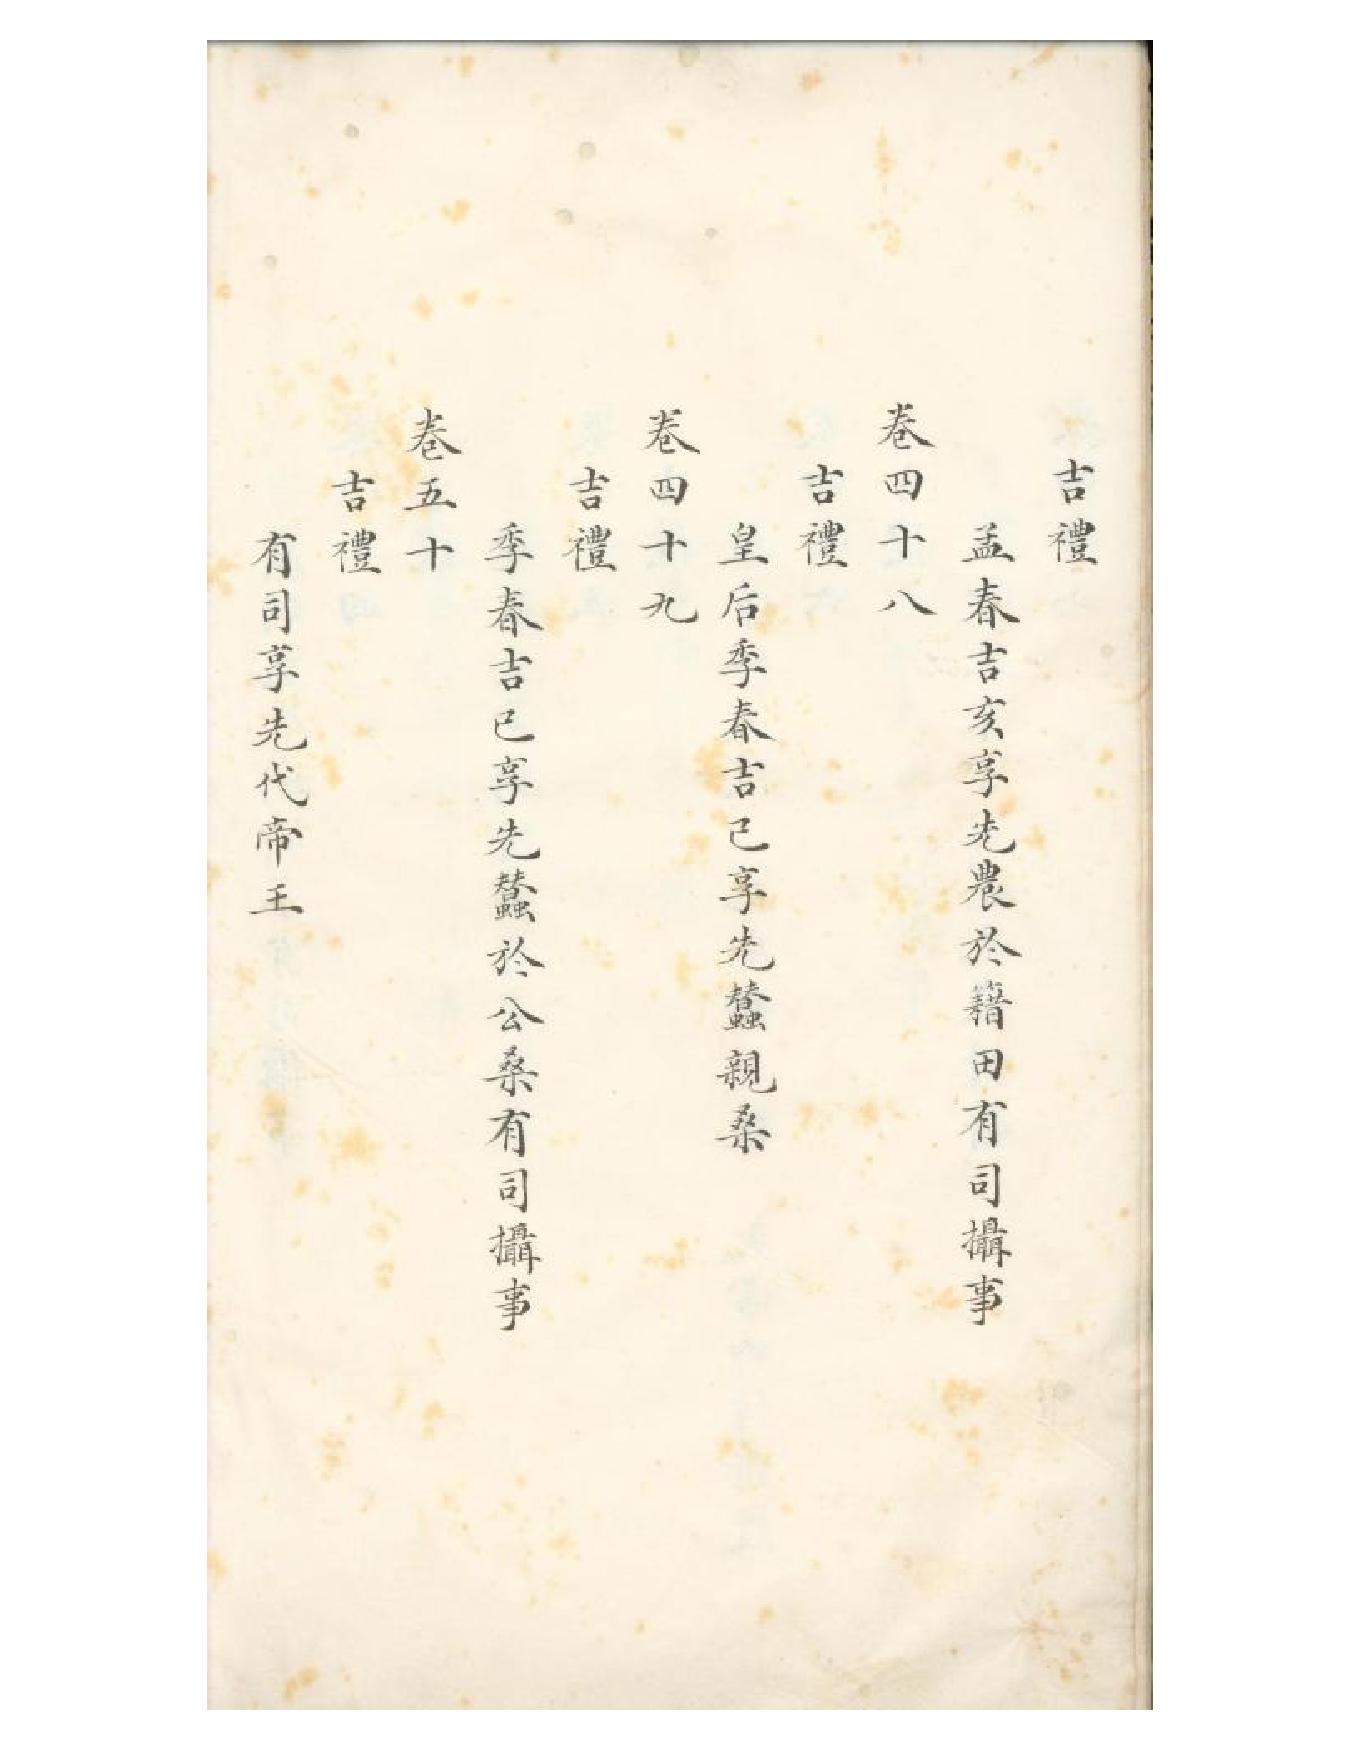 吉禮
孟春吉亥享先農於籍田有司攝事
卷四十八
吉禮
皇后季春吉已享先蠶親桑
卷四十九
吉禮
季春吉已享先蠶於公桑有司攝事
卷五十
吉禮
有司享先代帝王